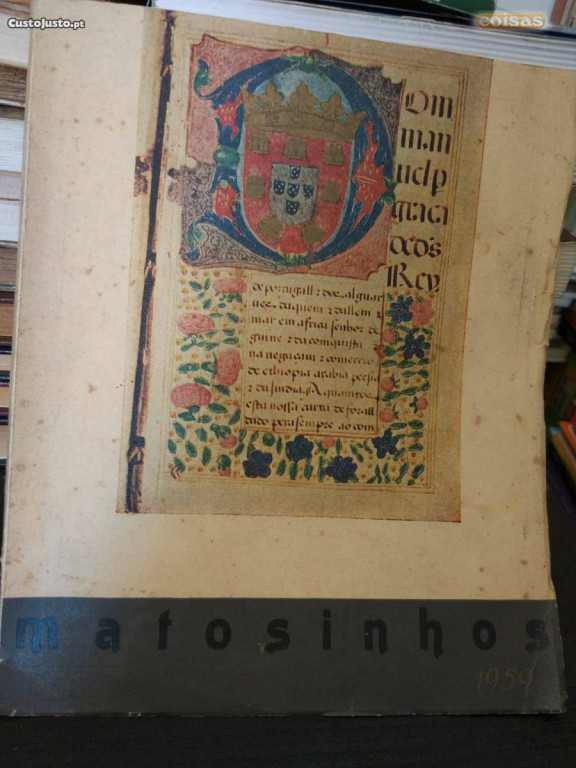 CustoJusto.pt
coisas
Dm
man
uel p
graca
de ds
Rey
de portugall z dos algar
ues daquem z dallem z
mar em africa senhor de
guine z da conquista
nauegacam z comercio
de ethiopia arabia persia
z da India. A quantos
esta nossa carta de forall
dado pera sempre ao com
matosinhos
1959